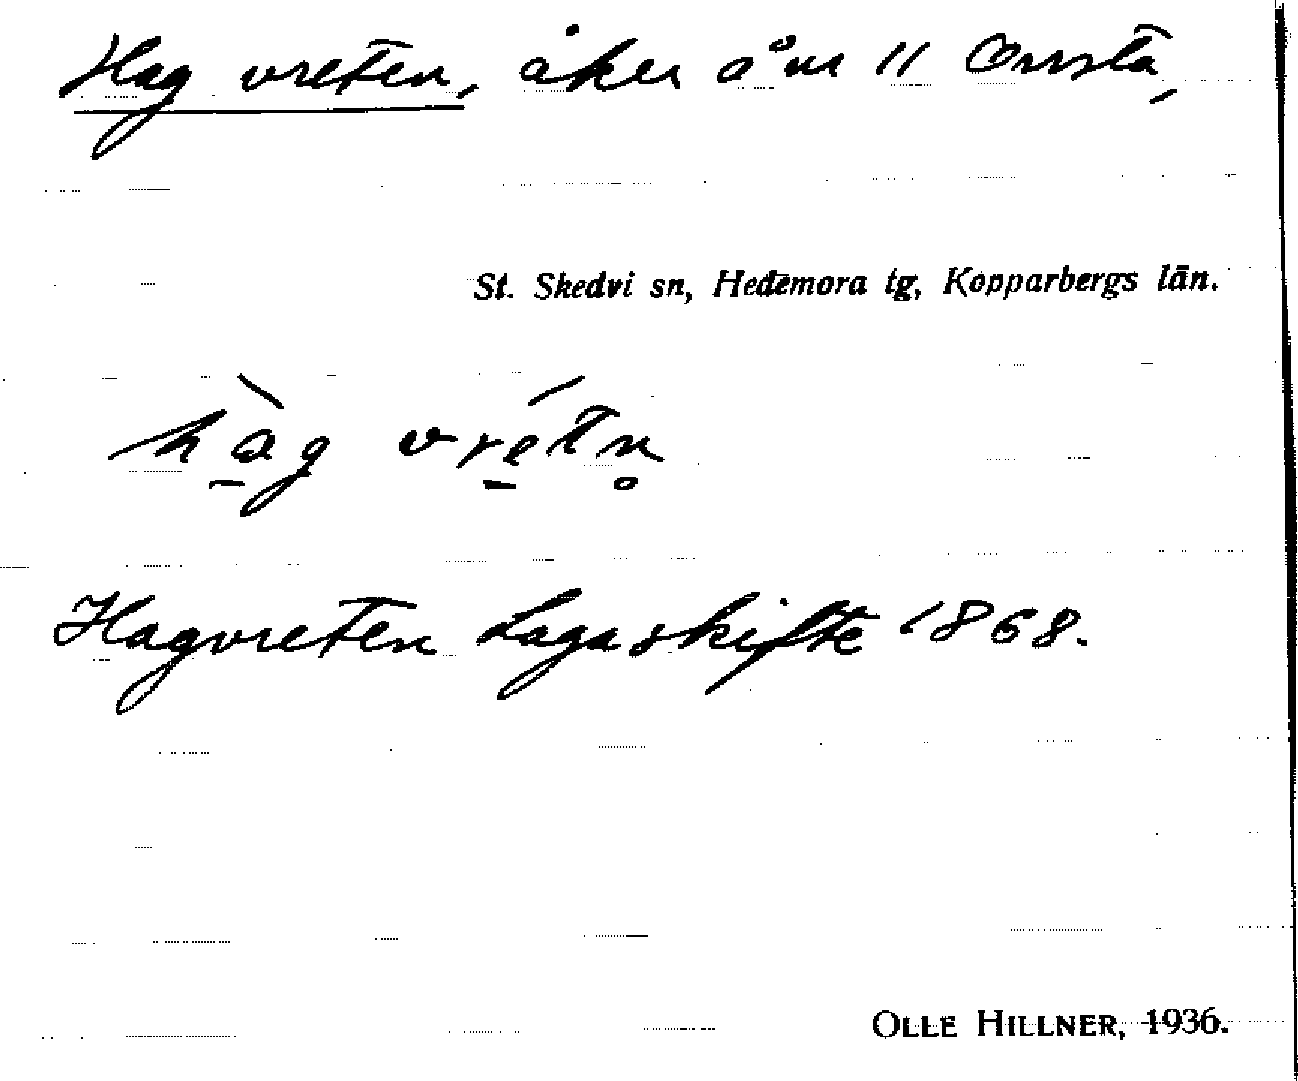 Hag vreten, åker å nr 11 Ornsta,
St. Skedvi sn, Hedemora tg, Kopparbergs län.
hàg vrétn
Hagvreten Laga skifte 1868.
OLLE HILLNER, 1936.